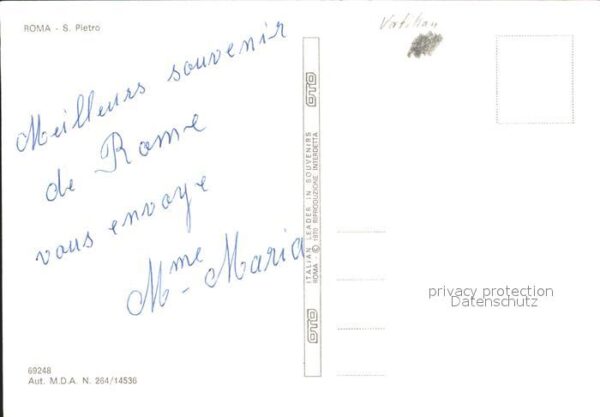 ROMA - S. Pietro
Meilleurs souvenir
de Rome
vous envoye
Mme - Maria
69248
Aut. M.D.A. N. 264/14536
OTO
ITALIAN LEADER IN SOUVENIRS
ROMA © 1970 RIPRODUZIONE INTERDETTA
OTO
Vatikan
privacy protection
Datenschutz